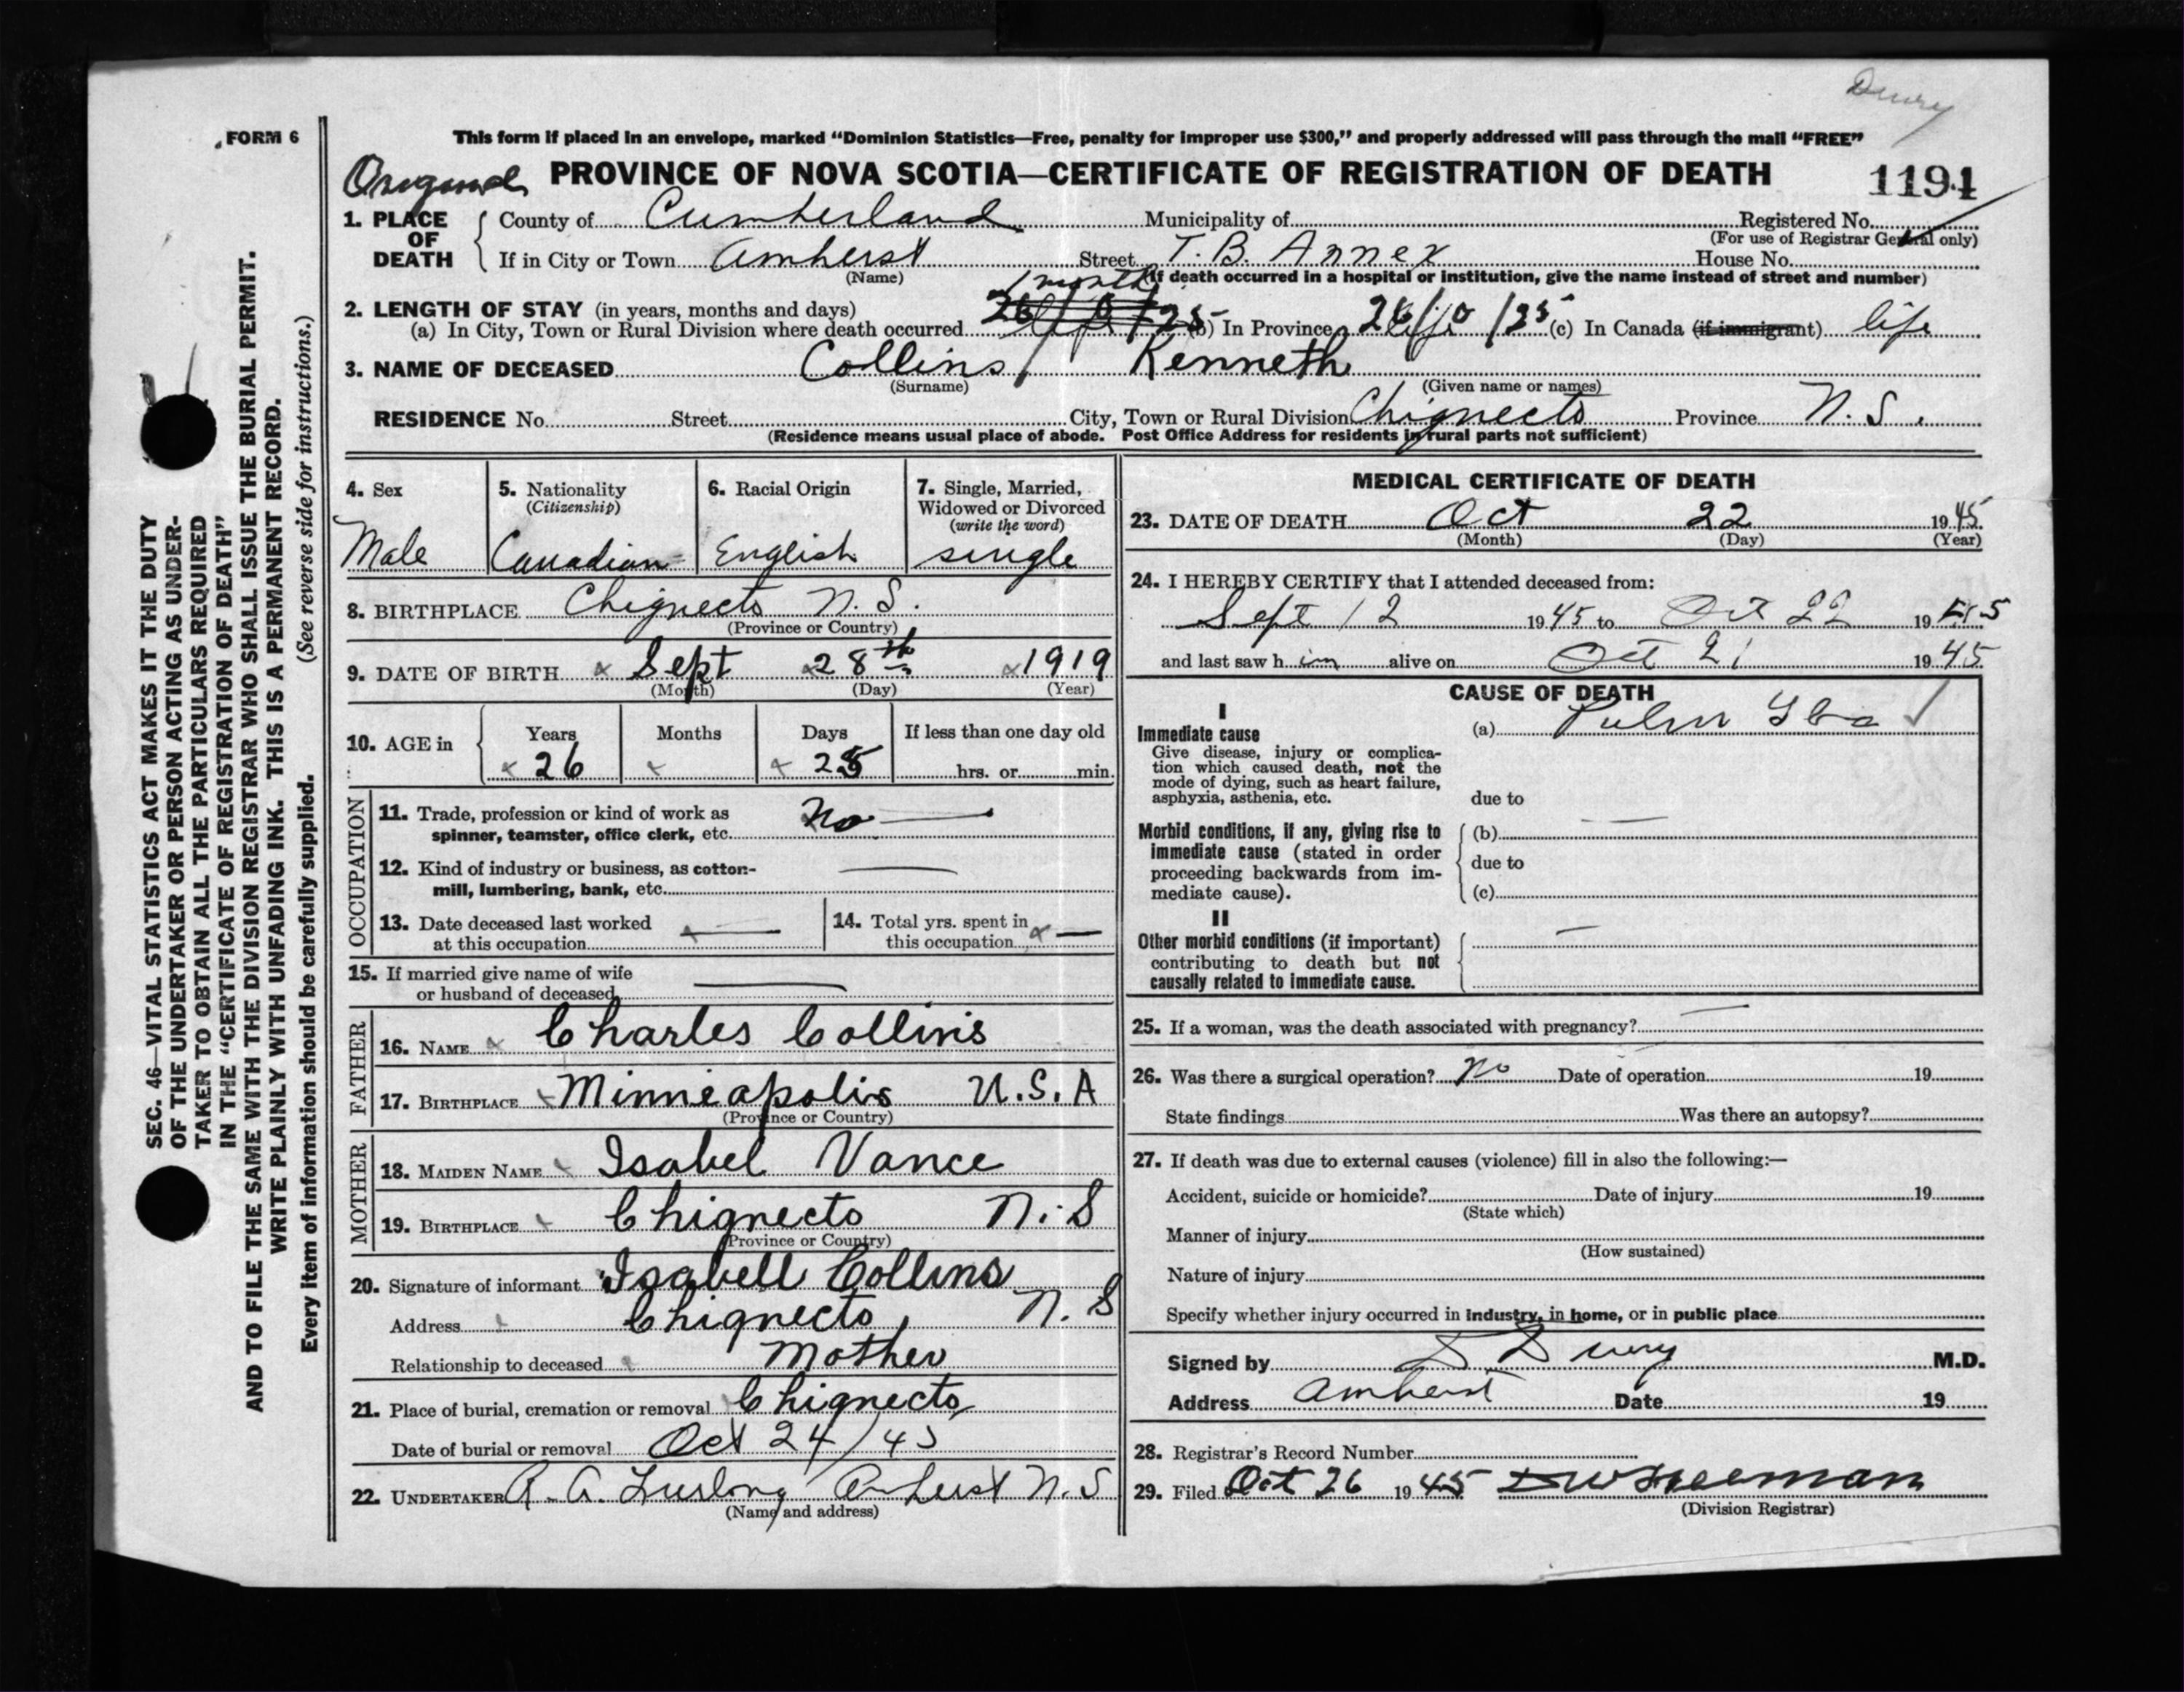 Drury
FORM 6
This form if placed in an envelope, marked “Dominion Statistics—Free, penalty for improper use $300,” and properly addressed will pass through the mail “FREE”
Original PROVINCE OF NOVA SCOTIA—CERTIFICATE OF REGISTRATION OF DEATH 1194
1. PLACE OF DEATH { County of Cumberland Municipality of Registered No.
(For use of Registrar General only)
If in City or Town Amherst Street T. B. Annex House No.
(Name) (If death occurred in a hospital or institution, give the name instead of street and number)
1 month
2. LENGTH OF STAY (in years, months and days)
(a) In City, Town or Rural Division where death occurred 26/0/25 (b) In Province 26/0/25 (c) In Canada (if immigrant) life
3. NAME OF DECEASED Collins / Kenneth
(Surname) (Given name or names)
RESIDENCE No. Street City, Town or Rural Division Chignecto Province N. S.
(Residence means usual place of abode. Post Office Address for residents in rural parts not sufficient)
4. Sex
Male
5. Nationality
(Citizenship)
Canadian
6. Racial Origin
English
7. Single, Married,
Widowed or Divorced
(write the word)
single
8. BIRTHPLACE Chignecto N. S.
(Province or Country)
9. DATE OF BIRTH Sept 28th 1919
(Month) (Day) (Year)
10. AGE in { Years Months Days If less than one day old
26 25 hrs. or min.
OCCUPATION
11. Trade, profession or kind of work as
spinner, teamster, office clerk, etc. No —
12. Kind of industry or business, as cotton-
mill, lumbering, bank, etc. —
13. Date deceased last worked
at this occupation —
14. Total yrs. spent in
this occupation —
15. If married give name of wife
or husband of deceased —
FATHER
16. NAME Charles Collins
17. BIRTHPLACE Minneapolis U.S.A
(Province or Country)
MOTHER
18. MAIDEN NAME Isabel Vance
19. BIRTHPLACE Chignecto N. S
(Province or Country)
20. Signature of informant Isabell Collins
Address Chignecto, N. S
Relationship to deceased Mother
21. Place of burial, cremation or removal Chignecto
Date of burial or removal Oct 24/45
22. UNDERTAKER R. A. Furlong Amherst N. S
(Name and address)
MEDICAL CERTIFICATE OF DEATH
23. DATE OF DEATH Oct 22 1945
(Month) (Day) (Year)
24. I HEREBY CERTIFY that I attended deceased from:
Sept 12 1945 to Oct 22 1945
and last saw him alive on Oct 21 1945
CAUSE OF DEATH
I
Immediate cause
Give disease, injury or complica-
tion which caused death, not the
mode of dying, such as heart failure,
asphyxia, asthenia, etc.
(a) Pulm Tbc
due to
Morbid conditions, if any, giving rise to
immediate cause (stated in order
proceeding backwards from im-
mediate cause).
(b) —
due to
(c)
II
Other morbid conditions (if important)
contributing to death but not
causally related to immediate cause.
—
25. If a woman, was the death associated with pregnancy? —
26. Was there a surgical operation? No Date of operation 19
State findings Was there an autopsy?
27. If death was due to external causes (violence) fill in also the following:—
Accident, suicide or homicide? Date of injury 19
(State which)
Manner of injury
(How sustained)
Nature of injury
Specify whether injury occurred in industry, in home, or in public place
Signed by D Drury M.D.
Address Amherst Date 19
28. Registrar's Record Number
29. Filed Oct 26 1945
(Division Registrar)
SEC. 46—VITAL STATISTICS ACT MAKES IT THE DUTY
OF THE UNDERTAKER OR PERSON ACTING AS UNDER-
TAKER TO OBTAIN ALL THE PARTICULARS REQUIRED
IN THE “CERTIFICATE OF REGISTRATION OF DEATH”
AND TO FILE THE SAME WITH THE DIVISION REGISTRAR WHO SHALL ISSUE THE BURIAL PERMIT.
WRITE PLAINLY WITH UNFADING INK. THIS IS A PERMANENT RECORD.
Every item of information should be carefully supplied. (See reverse side for instructions.)